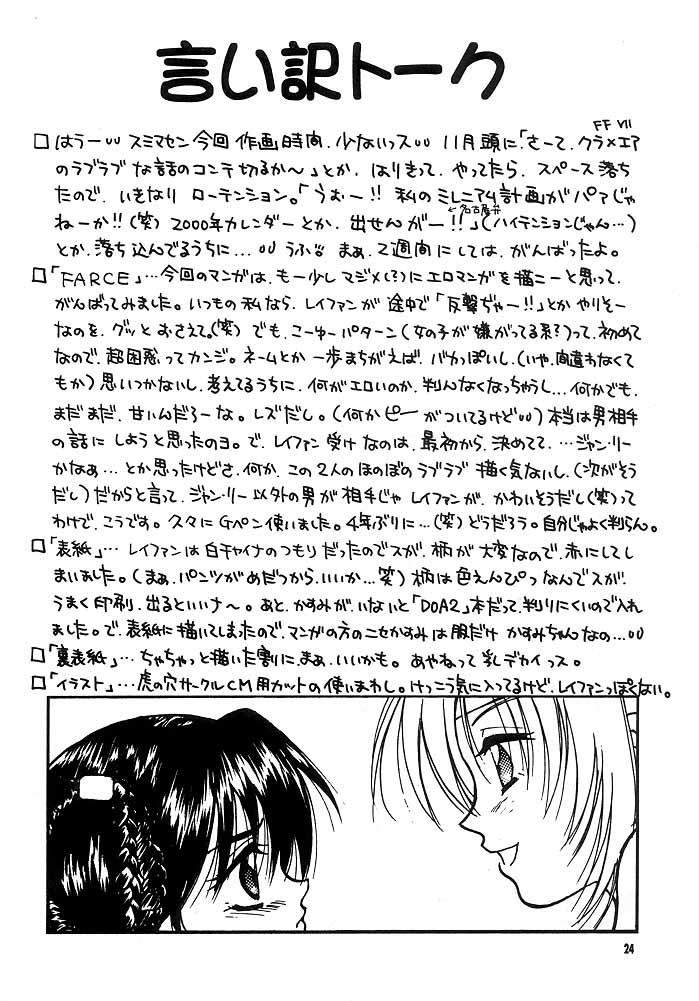 言い訳トーク
FF VII
□はうー○○ スミマセン今回 作画時間、少ないっス○○ 11月頭に「さーて、クラ×エア
のラブラブな話のコンテ切るか〜」とか、はりきって、やってたら、スペース落ち
たので、いきなり ローテンション。「うぉー!! 私のミレニアム計画がパァじゃ
←名古屋弁
ねーか!!(笑) 2000年カレンダーとか、出せんがー!!」(ハイテンションじゃん…)
とか、落ち込んでるうちに…○○ うふ まぁ、2週間にしては、がんばったよ。
□「FARCE」…今回のマンガは、もー少しマジメ(?)にエロマンガを描こーと思って、
がんばってみました。いつもの私なら、レイファンが途中で「反撃ぢゃー!!」とかやりそー
なのを、グッとおさえて。(笑) でも、こーゆーパターン(女の子が嫌がってる系?)って、初めて
なので、超困惑ってカンジ。ネームとか一歩まちがえば、バカっぽいし、(いや、間違わなくて
もか)思いつかないし、考えてるうちに、何がエロいのか、判んなくなっちゃうし…何かでも、
まだまだ、甘いんだろーな。レズだし。(何かピーがついてるけど○○)本当は男相手
の話にしようと思ったのヨ。で、レイファン受けなのは、最初から、決めてて、…ジャン・リー
かなぁ…とか思ったけどさ、何か、この2人のほのぼのラブラブ描く気ないし、(次がそう
だし)だからと言って、ジャン・リー以外の男が相手じゃレイファンが、かわいそうだし(笑)って
わけで、こうです。久々にGペン使いました。4年ぶりに…(笑)どうだろう。自分じゃよく判らん。
□「表紙」…レイファンは白チャイナのつもりだったのでスが、柄が大変なので、赤にしてし
まいました。(まぁ、パンツがめだつから、いいか…笑)柄は色えんぴつなんでスが、
うまく印刷、出るといいナ〜。あと、かすみが、いないと「DOA2」本だって、判りにくいので入れ
ました。で、表紙に描いてしまったので、マンガの方のニセかすみは服だけ かすみちゃんなの…○○
□「裏表紙」…ちゃちゃっと描いた割にまぁ、いいかも。あやねって乳デカイっス。
□「イラスト」…虎の穴サークルCM用カットの使いまわし。けっこう気に入ってるけど、レイファンっぽくない。
24